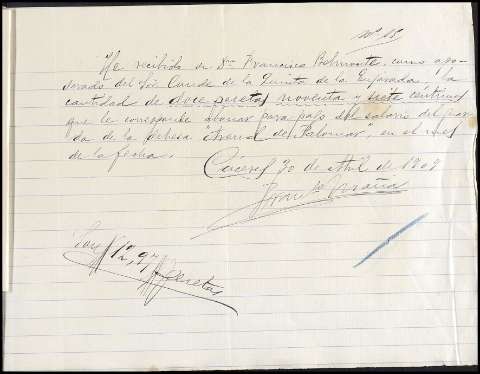 Nº 15
He recibido de Don Francisco Belmonte, como apo-
derado del Sor Conde de la Quinta de la Enjarada la
cantidad de doce pesetas noventa y siete céntimos
que le corresponde abonar para pago del salario del guar-
da de la dehesa "Arenal de Palomar", en el mes
de la fecha.
Cáceres 30 de Abril de 1909
Son 12,97 Pesetas